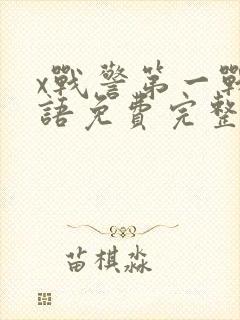 x戰警第一戰
語免費完整
苗棋淼